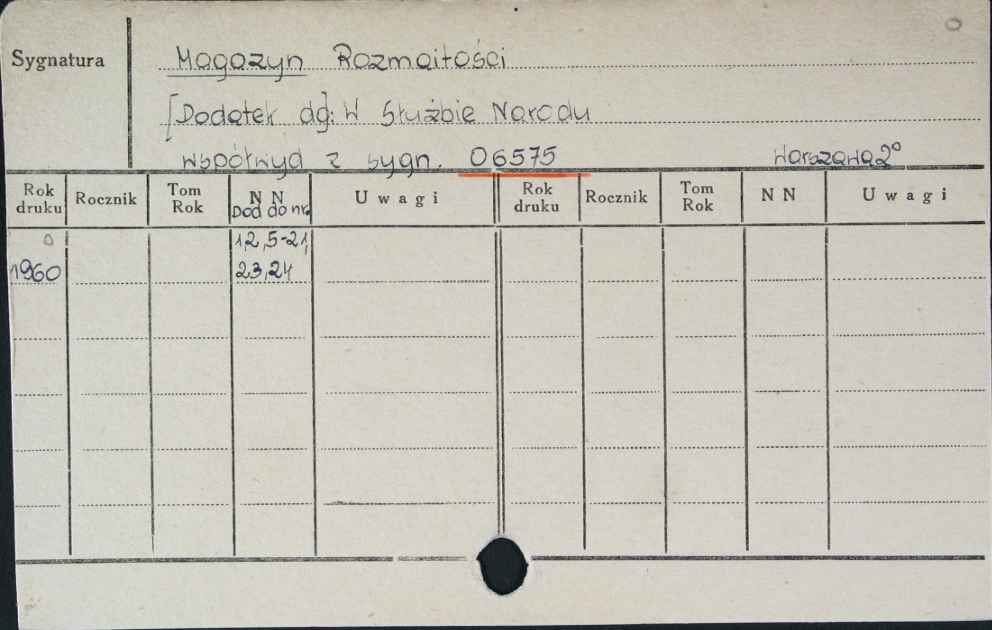 Sygnatura
Magazyn Rozmaitości
[Dodatek dg]: W Służbie Narodu
współwyd z sygn. 06575 Warszawa 2°
Rok druku Rocznik Tom Rok N N Dod do nr. Uwagi Rok druku Rocznik Tom Rok N N Uwagi
1,2,5-21,
1960 23,24